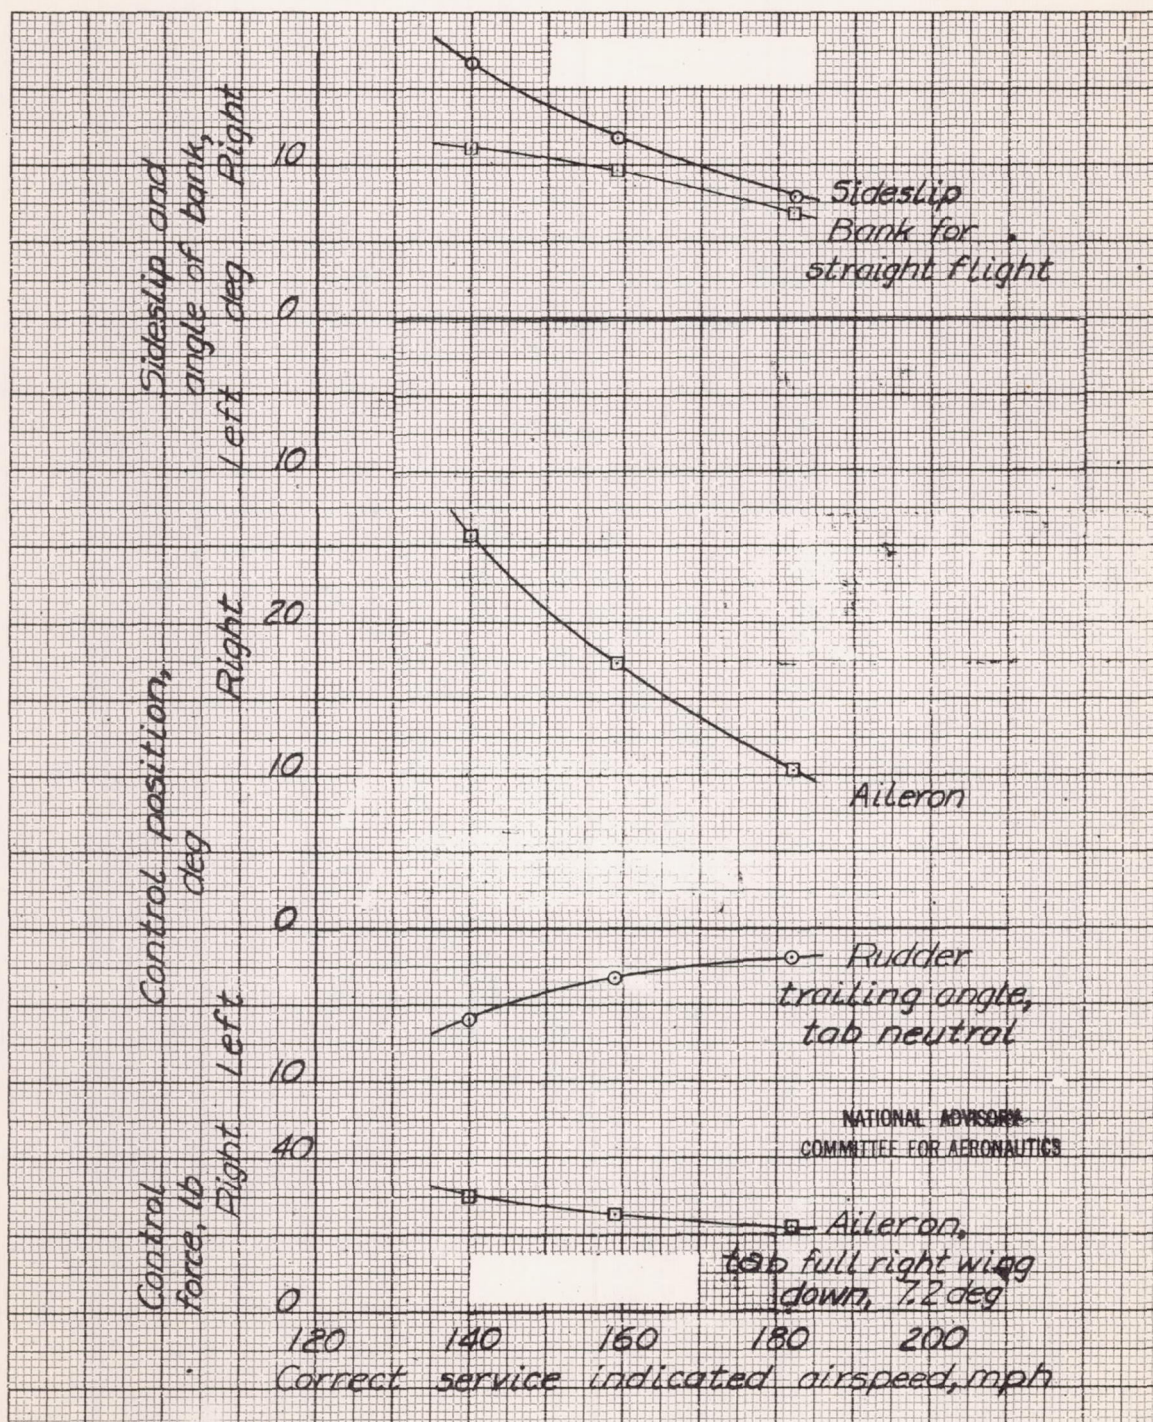 Sideslip and
angle of bank,
deg
Left Right
10
0
10
Sideslip
Bank for
straight flight
Control position,
deg
Left Right
20
10
0
10
Aileron
Rudder
trailing angle,
tab neutral
NATIONAL ADVISORY
COMMITTEE FOR AERONAUTICS
Control
force, lb
Right
40
0
Aileron,
tab full right wing
down, 7.2 deg
120 140 160 180 200
Correct service indicated airspeed, mph